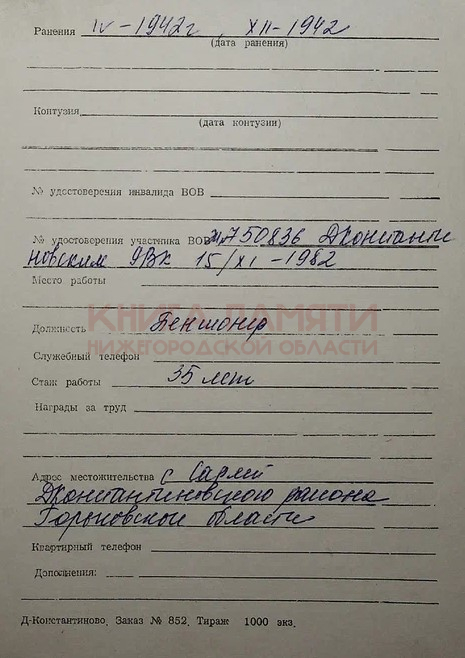 Ранения IV-1942г XII-1942
(дата ранения)
Контузия
(дата контузии)
№ удостоверения инвалида ВОВ
№ удостоверения участника ВОВ 750836 Дконстанти
новским РВК 15/XI-1982
Место работы
КНИГА ПАМЯТИ
Должность Пенсионер
НИЖЕГОРОДСКОЙ ОБЛАСТИ
Служебный телефон
Стаж работы 35 лет
Награды за труд
Адрес местожительства с
Дконстантиновского района
Горьковской области
Квартирный телефон
Дополнения:
Д-Константиново. Заказ № 852. Тираж 1000 экз.